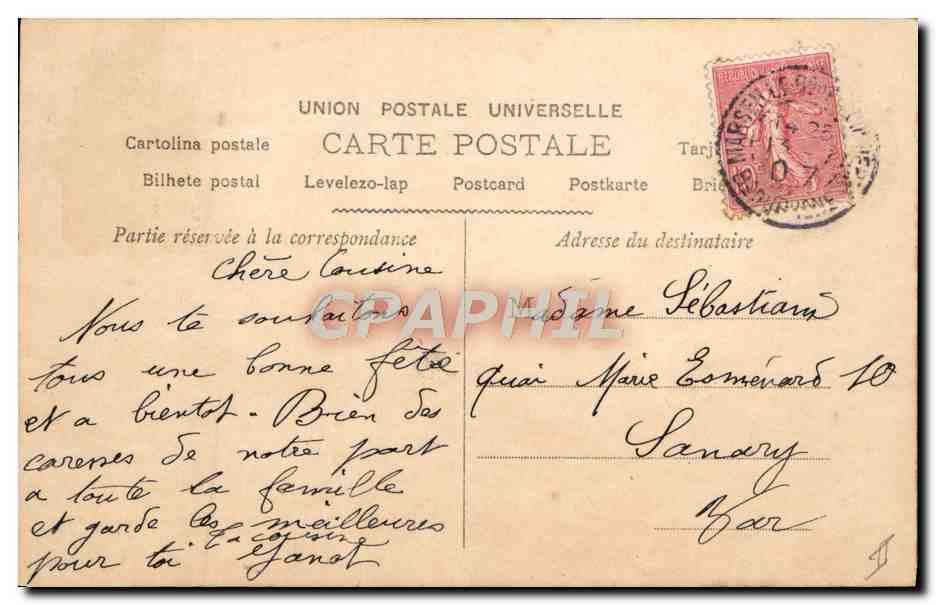 UNION POSTALE UNIVERSELLE
CARTE POSTALE
Cartolina postale
Tarj
Bilhete postal Levelezo-lap Postcard Postkarte Brie
RÉPUBLIQUE
MARSEILLE
Partie réservée à la correspondance
Chère Cousine
Nous te souhaitons
tous une bonne fête
et a bientot. Bien des
caresses de notre part
a toute la famille
et garde les meilleures
pour toi ta cousine
Janot
Adresse du destinataire
Madame Sébastiani
quai Marie Esménard 10
Sanary
Var
CPAPHIL